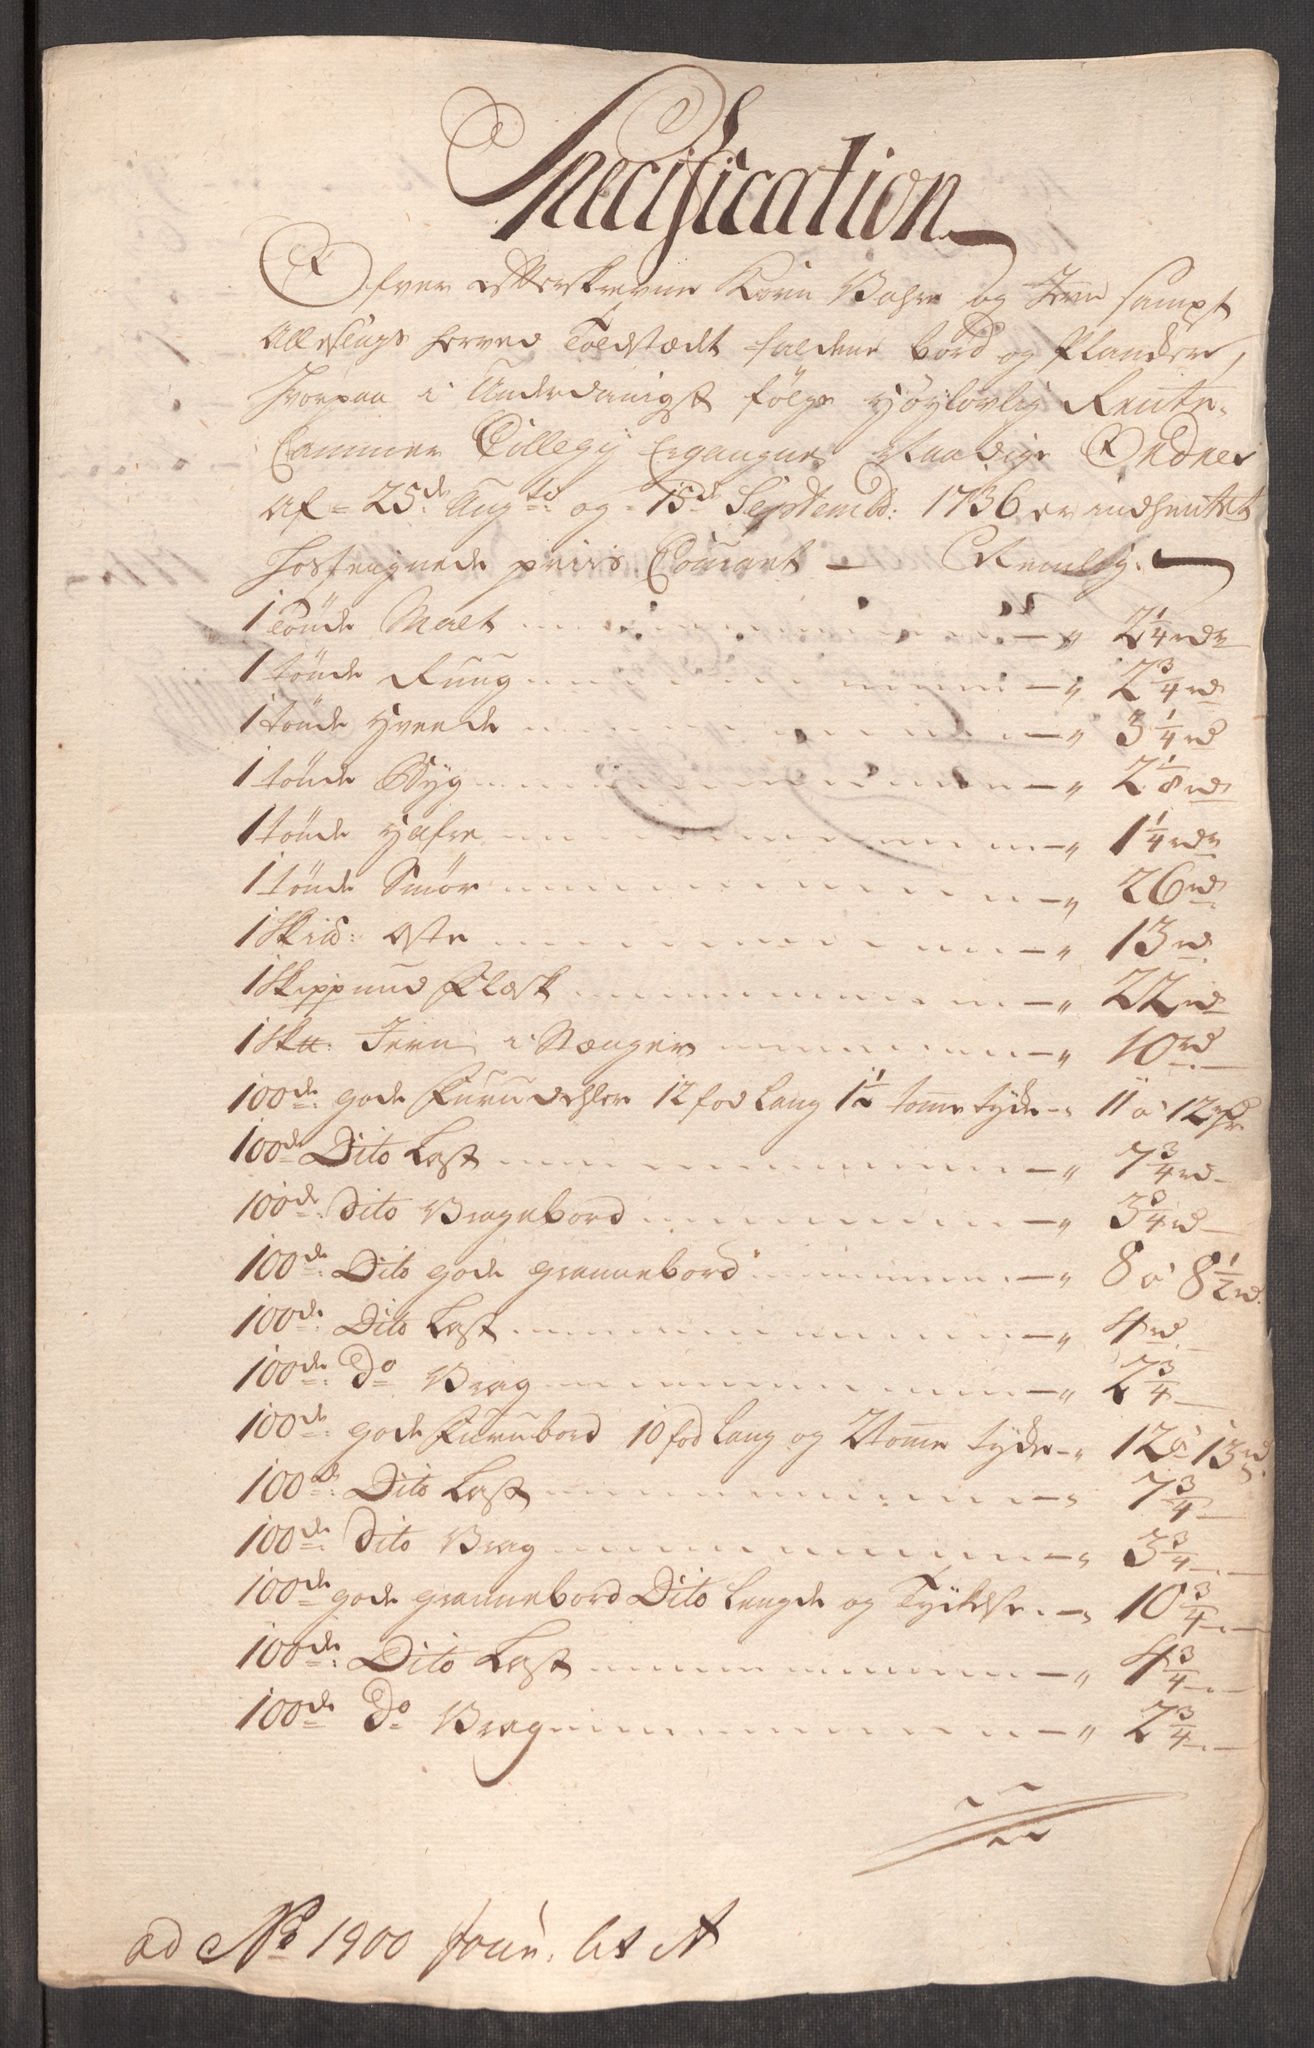 Specification
Ofver efterskrevne Korn Vahre og Jern sampt
Alleslags herved Toldstædet faldene bord og Plancker,
hvorpaa i Underdanigst følge Høylovlig Rente-
Cammer Collegij Ergangne Naadige Ordres
Af 25de Augti: og 15de Septembr: 1736 er indhentet
hostegnede priis Courant — Nemlig.
1 Tönde Malt — " 2 1/4 rdr
1 tönde Ruug — " 2 3/4 rd
1 tönde Hveede — " 3 1/4 rd
1 tönde Byg — " 2 1/8 rd
1 tönde Hafre — " 1 1/4 rdr
1 tönde Smör — " 26 rd
1 Skid: Oste — " 13 rd
1 Skippund Flesk — " 22 rd
1 Sk℔: Jern i Stænger — " 10 rd
100de gode Furudehler 12 fod Lang 1 1/2 tomme tyde - " 11 a 12 rdr
100de Dito Last — " 7 3/4 rd
100de Dito Vragebord — " 3 3/4 rd
100de Dito gode grannebord — " 8 a 8 1/2 rd.
100de Dito Last — " 4 rd.
100de Do Vrag — " 2 3/4
100de gode Furubord 10 fod Lang og 2 tomme tyde - " 12 a 13 rd.
100de Dito Last — " 7 3/4
100de Dito Vrag — " 3 3/4
100de gode grannebord Dito Lengde og Tyckelse. — " 10 3/4
100de Dito Last — " 4 3/4
100de Do Vrag — " 2 3/4
ad No 1900 Jour. Lit A